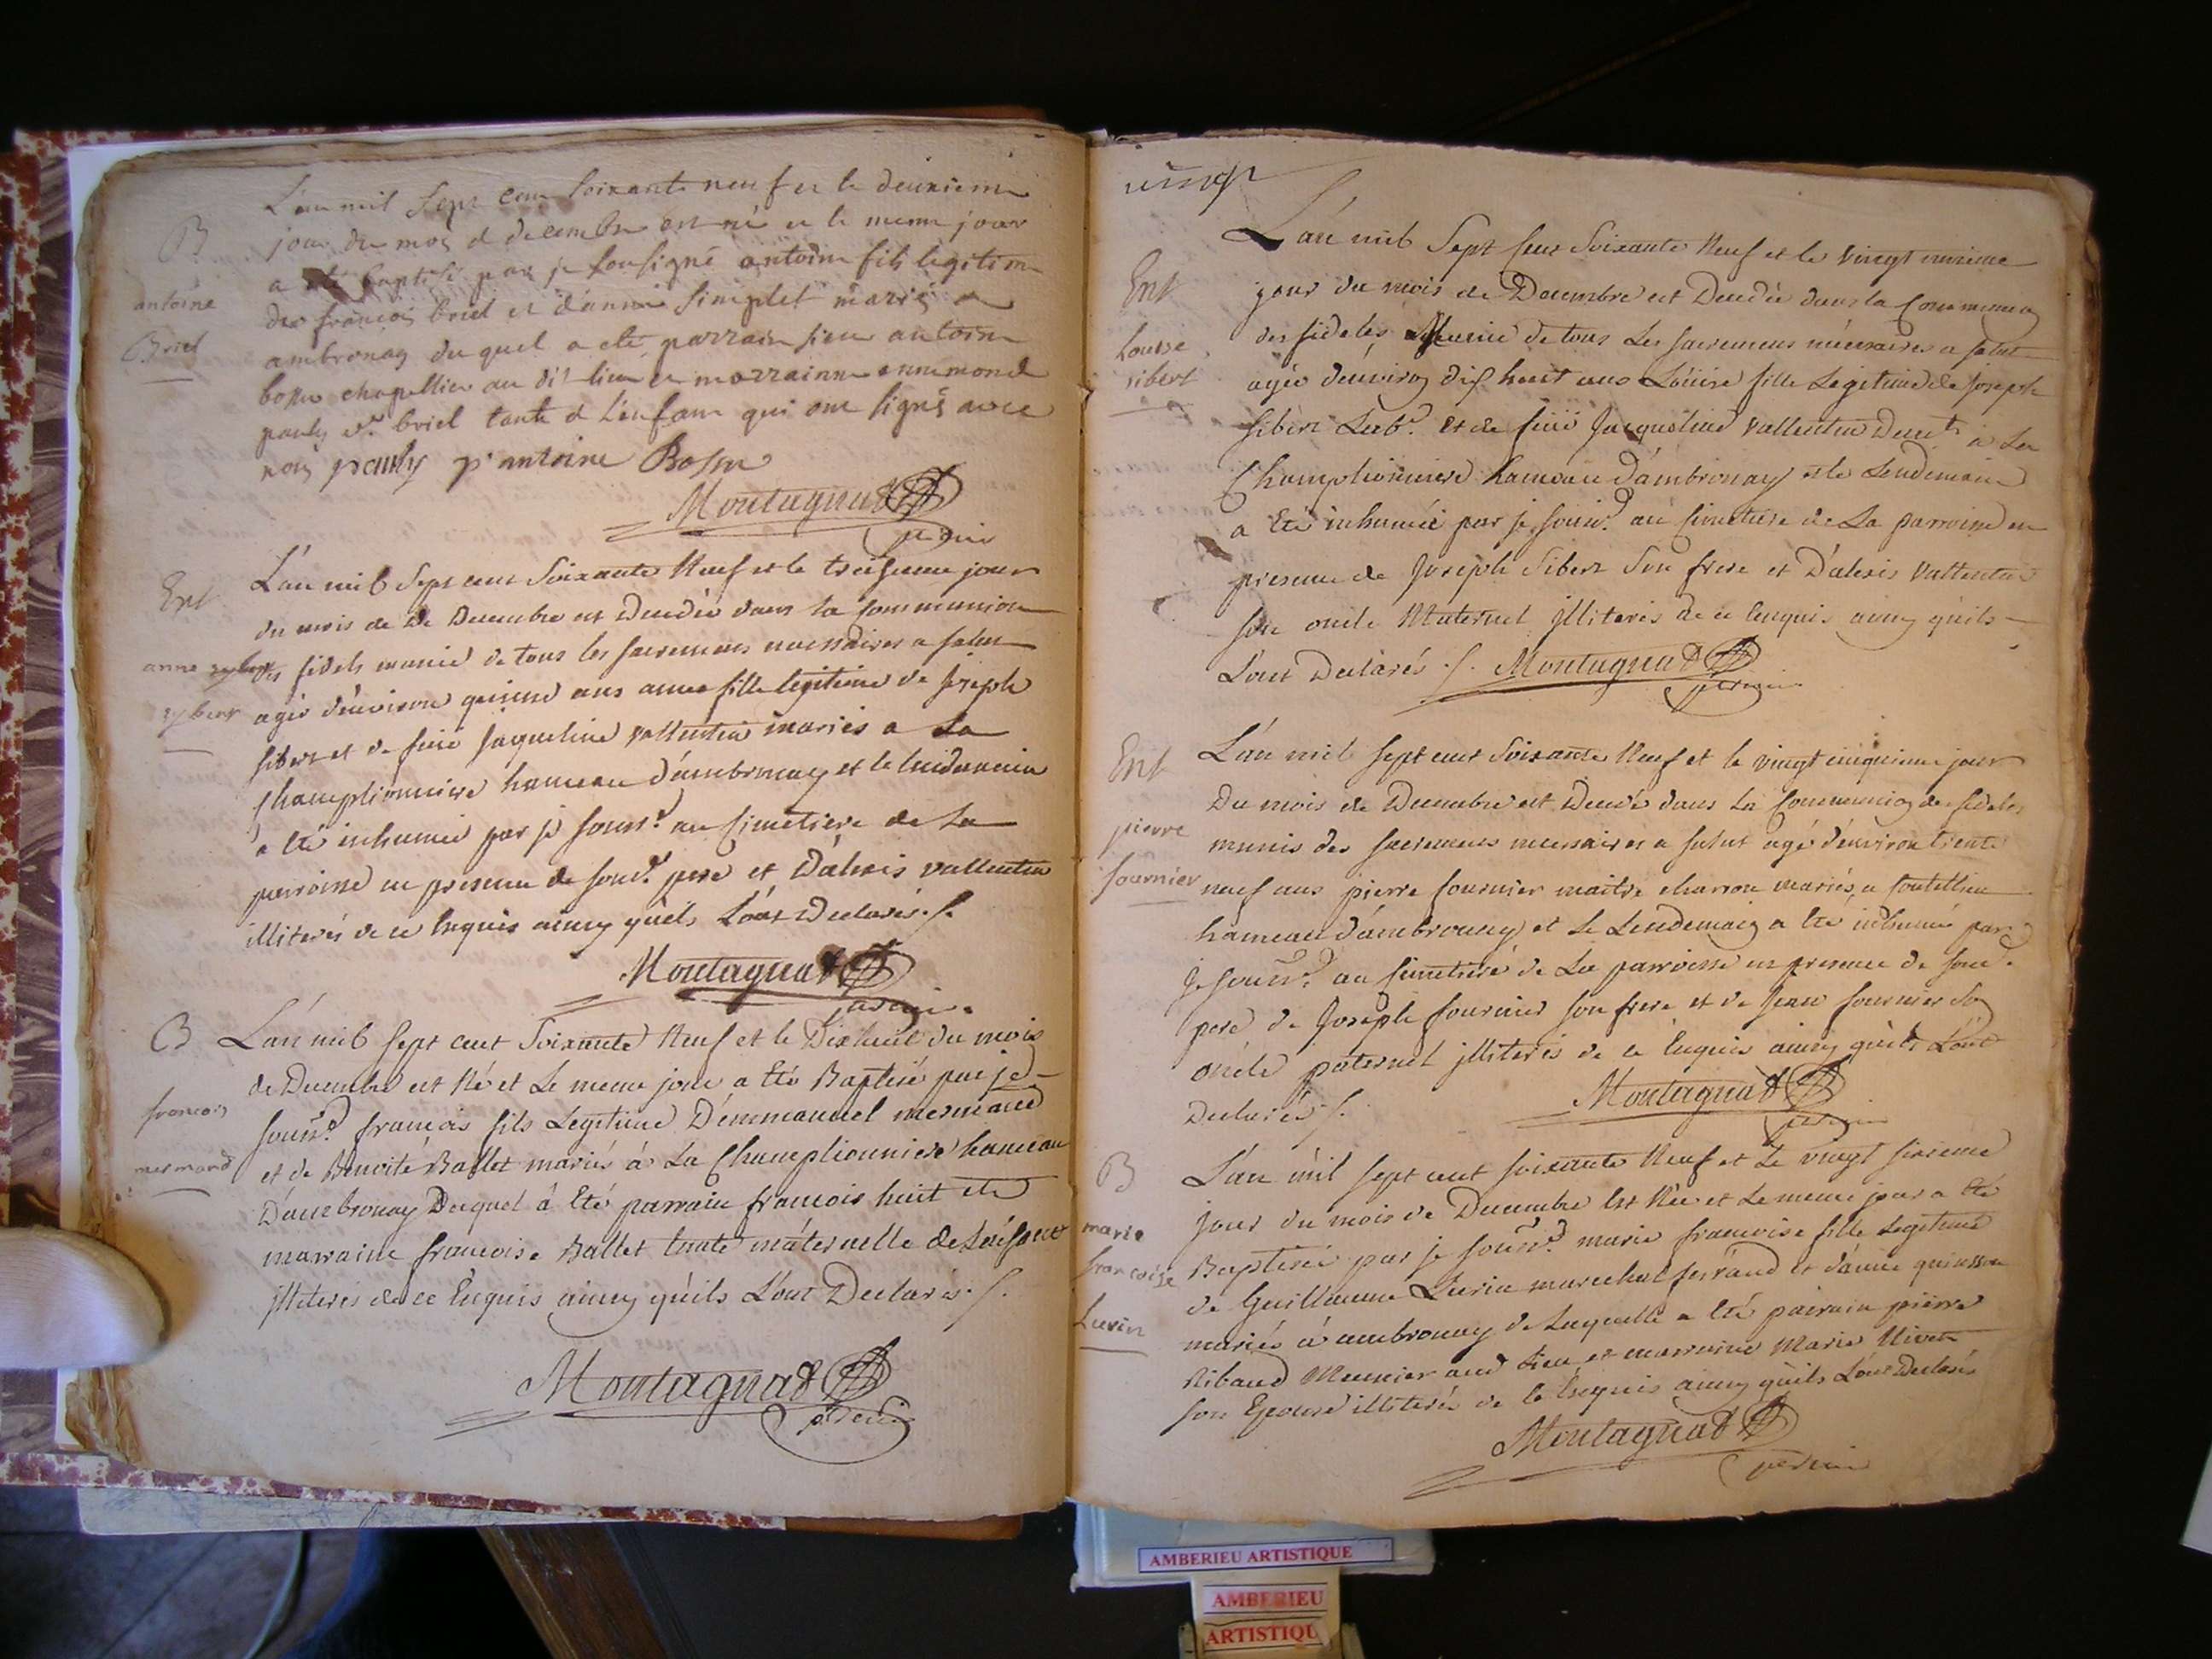 B
antoine
Briel
L'an mil sept cent soixante neuf et le deuxieme
jour du mois de decembre est né et le meme jour
a été baptisé par je sousigné antoine fils legitime
de francois briel et d'anne simplet mariés a
ambronay duquel a eté parrain sieur antoine
bossu chapellier au dit lieu et marrainne annemonde
pauly Ve briel tante de l'enfant qui ont signé avec
nous pauly p antoine Bossu
Montagnat
Ent
anne sybert
sybert
L'an mil Sept cent Soixante Neuf et le treisieme jour
du mois de De Decembre est Decedée dans la Communion
des fidels munie de tous les sacremens necessaires a salut
agée d'environ quinse ans anne fille legitime de Joseph
sibert et de feüe Jaqueline vallentin mariés a La
Championniere hameau d'ambronay et le lendemain
a été inhumée par je souss.é au Cimetiere de La
parroisse en presence de sond.t pere et D'alexis vallentin
illiterés de ce Enquis ainsy qu'ils L'ont Declarés ./.
Montagnat
B
francois
mermand
L'an mil Sept cent Soixante Neuf et le Dixhuit du mois
de Decembre est Né et Le meme jour a été Baptisé par je
souss.é francois fils Legitime D'emmanuel mermand
et de Benoite Ballet mariés à La Championniere hameau
D'ambronay Duquel à Eté parrain francois huit et
marraine francoise Ballet tante maternelle de L'enfant
illiterés de ce Enquis ainsy qu'ils L'ont Declarés ./.
Montagnat
vingt
Ent
Louise
sibert
L'an mil Sept Cent Soixante Neuf et le vingt unieme
jour du mois de Decembre est Decedée dans la Communion
des fideles Munie de tous Les sacremens nécessaires a salut
agée d'environ dix huit ans Loüise fille Legitime de Joseph
Sibert Lab.r et de feüe Jacqueline vallentin Demt à La
Championniere hameau d'ambronay et le Lendemain
a Eté inhumée par je souss.é au Cimetiere de La parroisse en
presence de Joseph Sibert Son frere et D'alexis vallentin
son oncle Maternel illiterés de ce Enquis ainsy qu'ils
L'ont Declarés ./. Montagnat
Ent
pierre
fournier
L'an mil sept cent Soixante Neuf et le vingt cinquieme jour
Du mois de Decembre est Decedé dans La Communion des fideles
munis des sacremens necessaires a salut agé d'environ trente
neuf ans pierre fournier maitre charron mariés a
hameau d'ambronay et Le Lendemain a été inhumé par
je souss.é au Cimetiere de La parroisse en presence de sond.t
pere de Joseph fournier son frere et de Jean fournier So
oncle paternel illiterés de ce Enquis ainsy qu'ils L'ont
Declarés ./.
Montagnat
B
marie
francoise
Luvin
L'an mil sept cent soixante Neuf et Le vingt sixieme
jour du mois de Decembre Est Née et Le meme jour a été
Baptisée par je souss.é marie francoise fille Legitime
de Guillaume Luvin marechal ferrand et d'anne
mariés à ambronay de Laquelle a Eté parrain pierre
Ribaud Meunier aud Lieu et marraine Marie Nivet
son Epouse illiterés de ce Enquis ainsy qu'ils L'ont Declarés
Montagnat
AMBERIEU ARTISTIQUE
AMBERIEU
ARTISTIQU